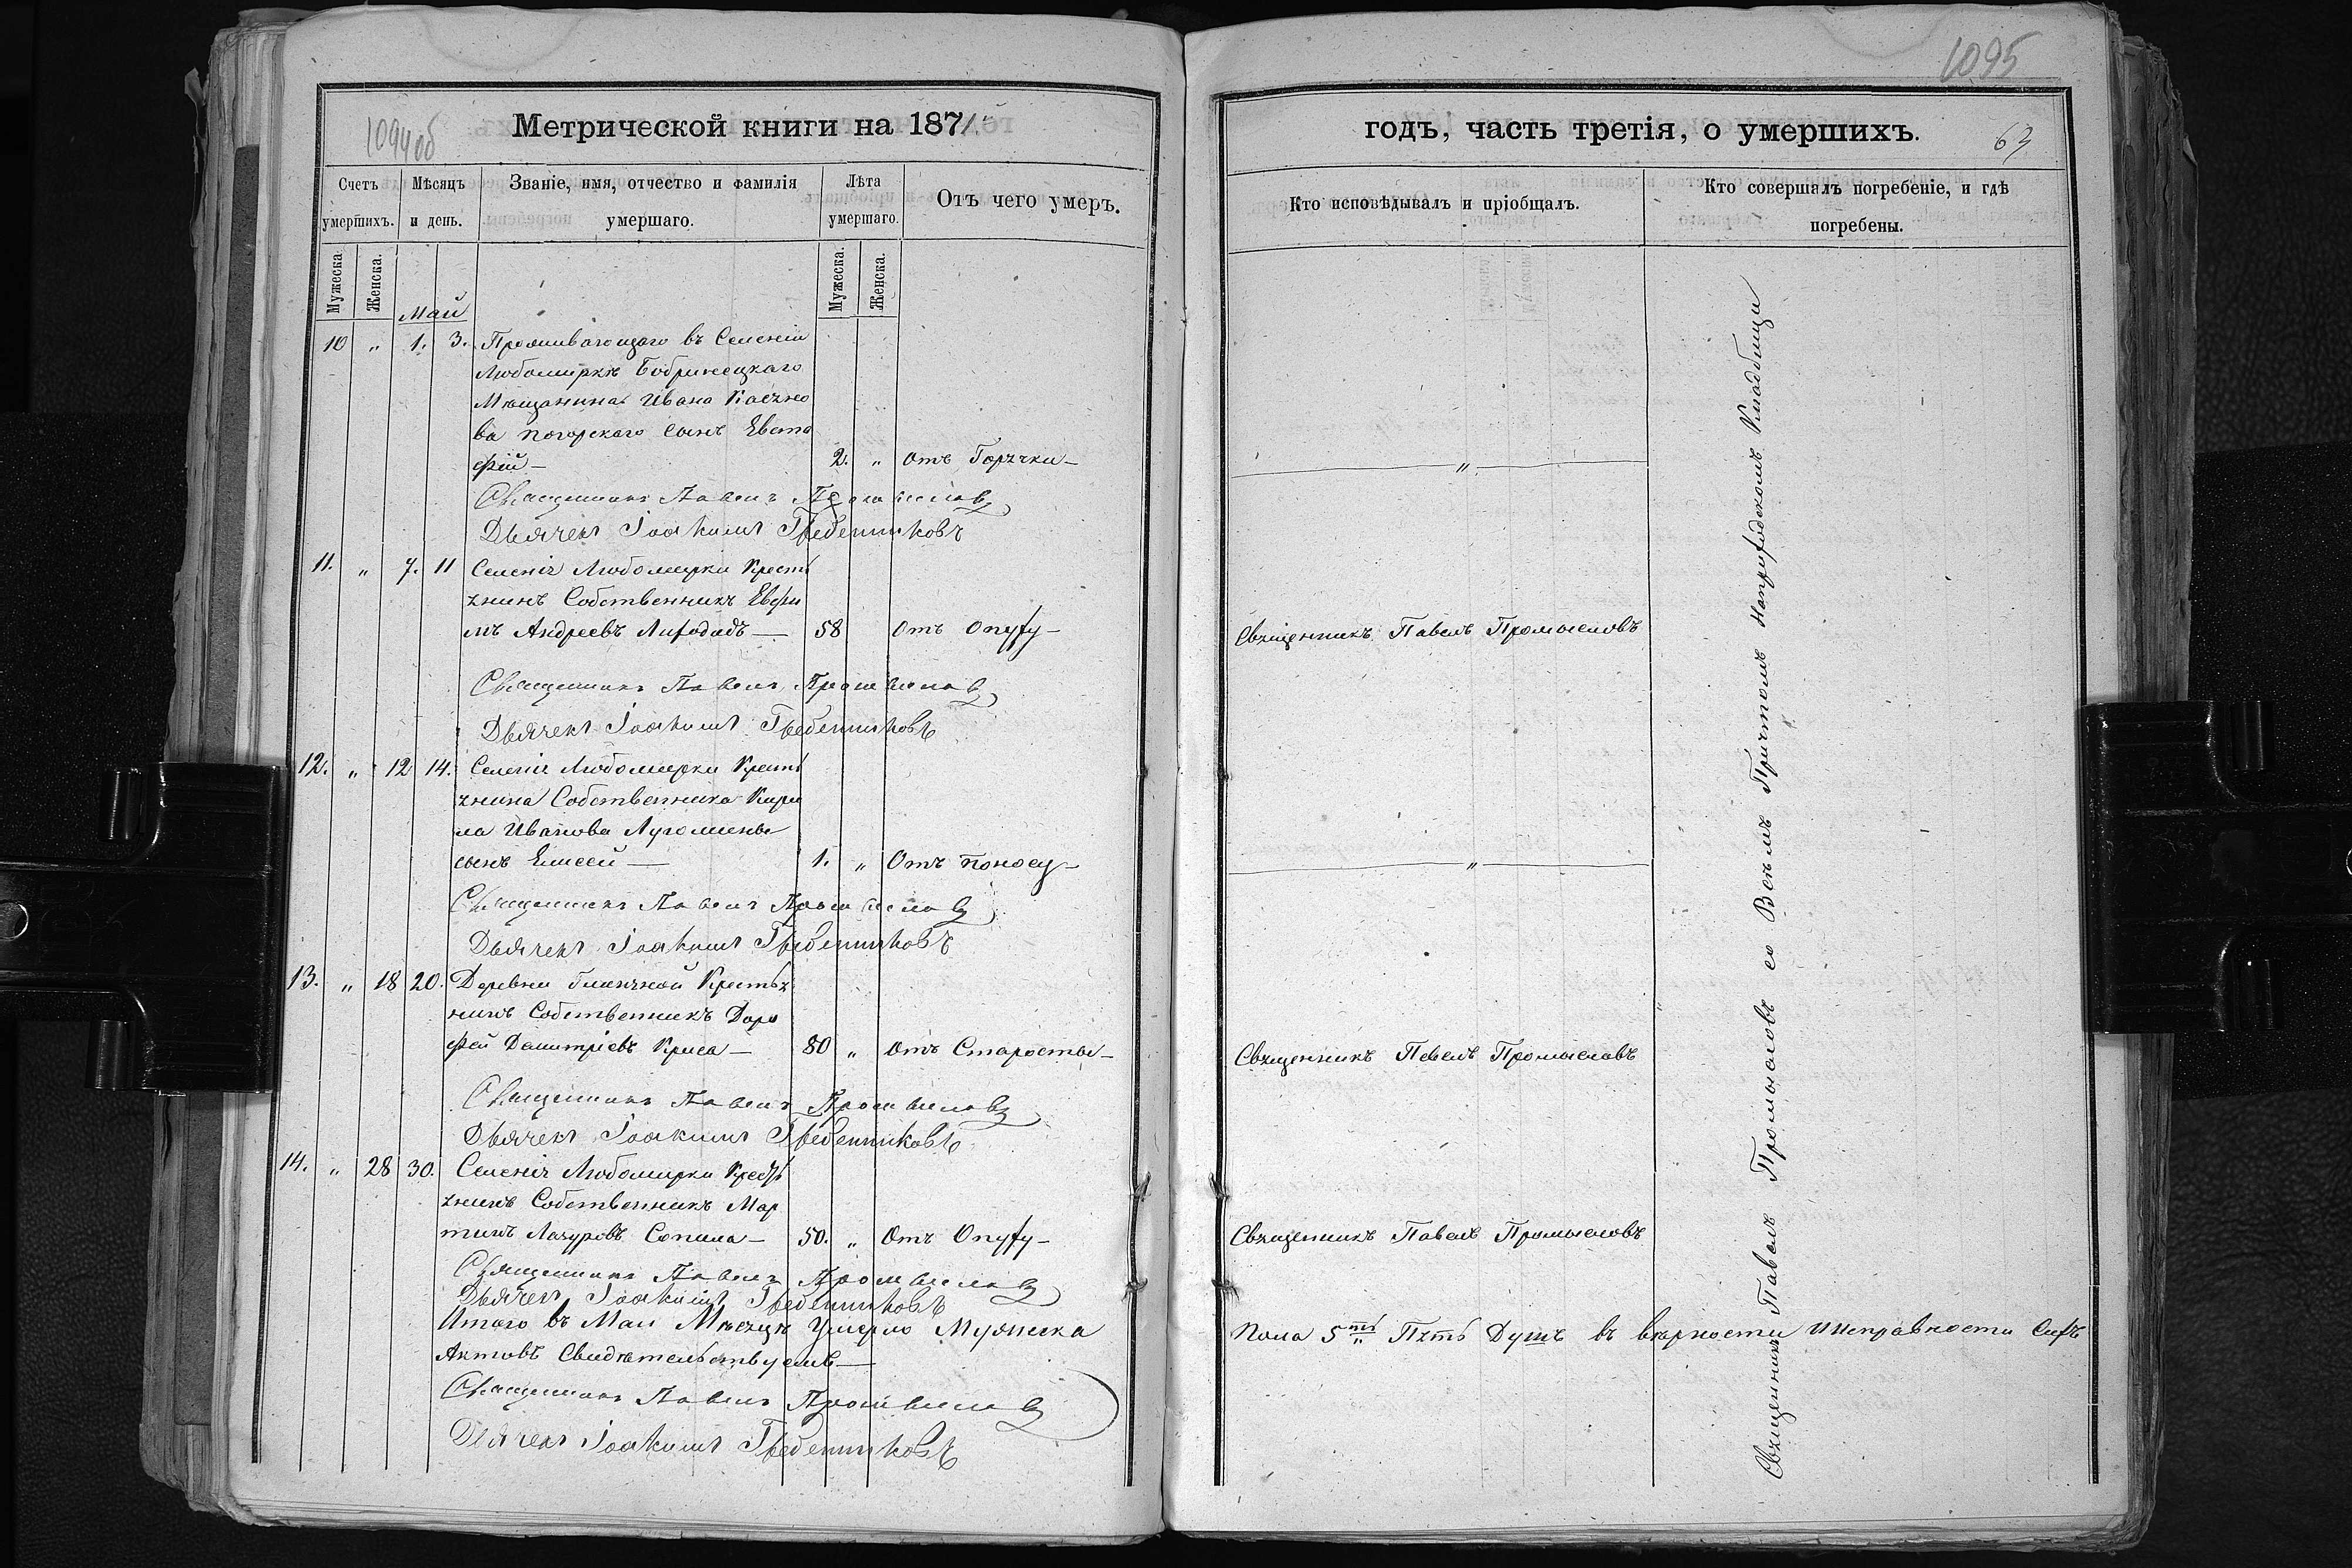 1094об
Метрической книги на 1871
Счетъ умершихъ.
Мѣсяцъ и день.
Званіе, имя, отчество и фамилія умершаго.
Лѣта умершаго.
Отъ чего умеръ.
Мужеска.
Женска.
Мужеска.
Женска.
Май
10 " 1. 3. Проживающаго въ Селеніи
Любомиркѣ Бобринецкаго
Мѣщанина Ивана
сынъ Евста
фій — 2. " Отъ Горячки —
Священникъ Павелъ Промысловъ
Дьячекъ Іоакимъ Гребенниковъ
11. " 7. 11 Селенія Любомирки Кресть
янинъ Собственникъ Ефи
мъ Андреевъ — 58 Отъ Опуху —
Священникъ Павелъ Промысловъ
Дьячекъ Іоакимъ Гребенниковъ
12. " 12 14. Селенія Любомирки Кресть
янина Собственника Кири
ла Иванова
сынъ Елисей — 1. " Отъ поносу —
Священникъ Павелъ Промысловъ
Дьячекъ Іоакимъ Гребенниковъ
13. " 18 20. Деревни Крестья
нинъ Собственникъ Доро
фей Димитріевъ Криса — 80 " Отъ Старости —
Священникъ Павелъ Промысловъ
Дьячекъ Іоакимъ Гребенниковъ
14. " 28 30. Селенія Любомирки Кресть
янинъ Собственникъ Мар
тинъ Сопила — 50. " Отъ Опуху —
Священникъ Павелъ Промысловъ
Дьячекъ Іоакимъ Гребенниковъ
Итого въ Маи Мѣсяцѣ Умерло Мужеска
Актовъ Свидѣтельствуемъ —
Священникъ Павелъ Промысловъ
Дьячекъ Іоакимъ Гребенниковъ
1095
годъ, часть третія, о умершихъ.
63
Кто исповѣдывалъ и пріобщалъ.
Кто совершалъ погребеніе, и гдѣ погребены.
"
Священникъ Павелъ Промысловъ
"
Священникъ Павелъ Промысловъ
Священникъ Павелъ Промысловъ
Пола 5ть Пять Душъ въ вѣрности и исправности сихъ
Священникъ Павелъ Промысловъ со Всѣмъ Причтомъ На приходскомъ Кладбищи